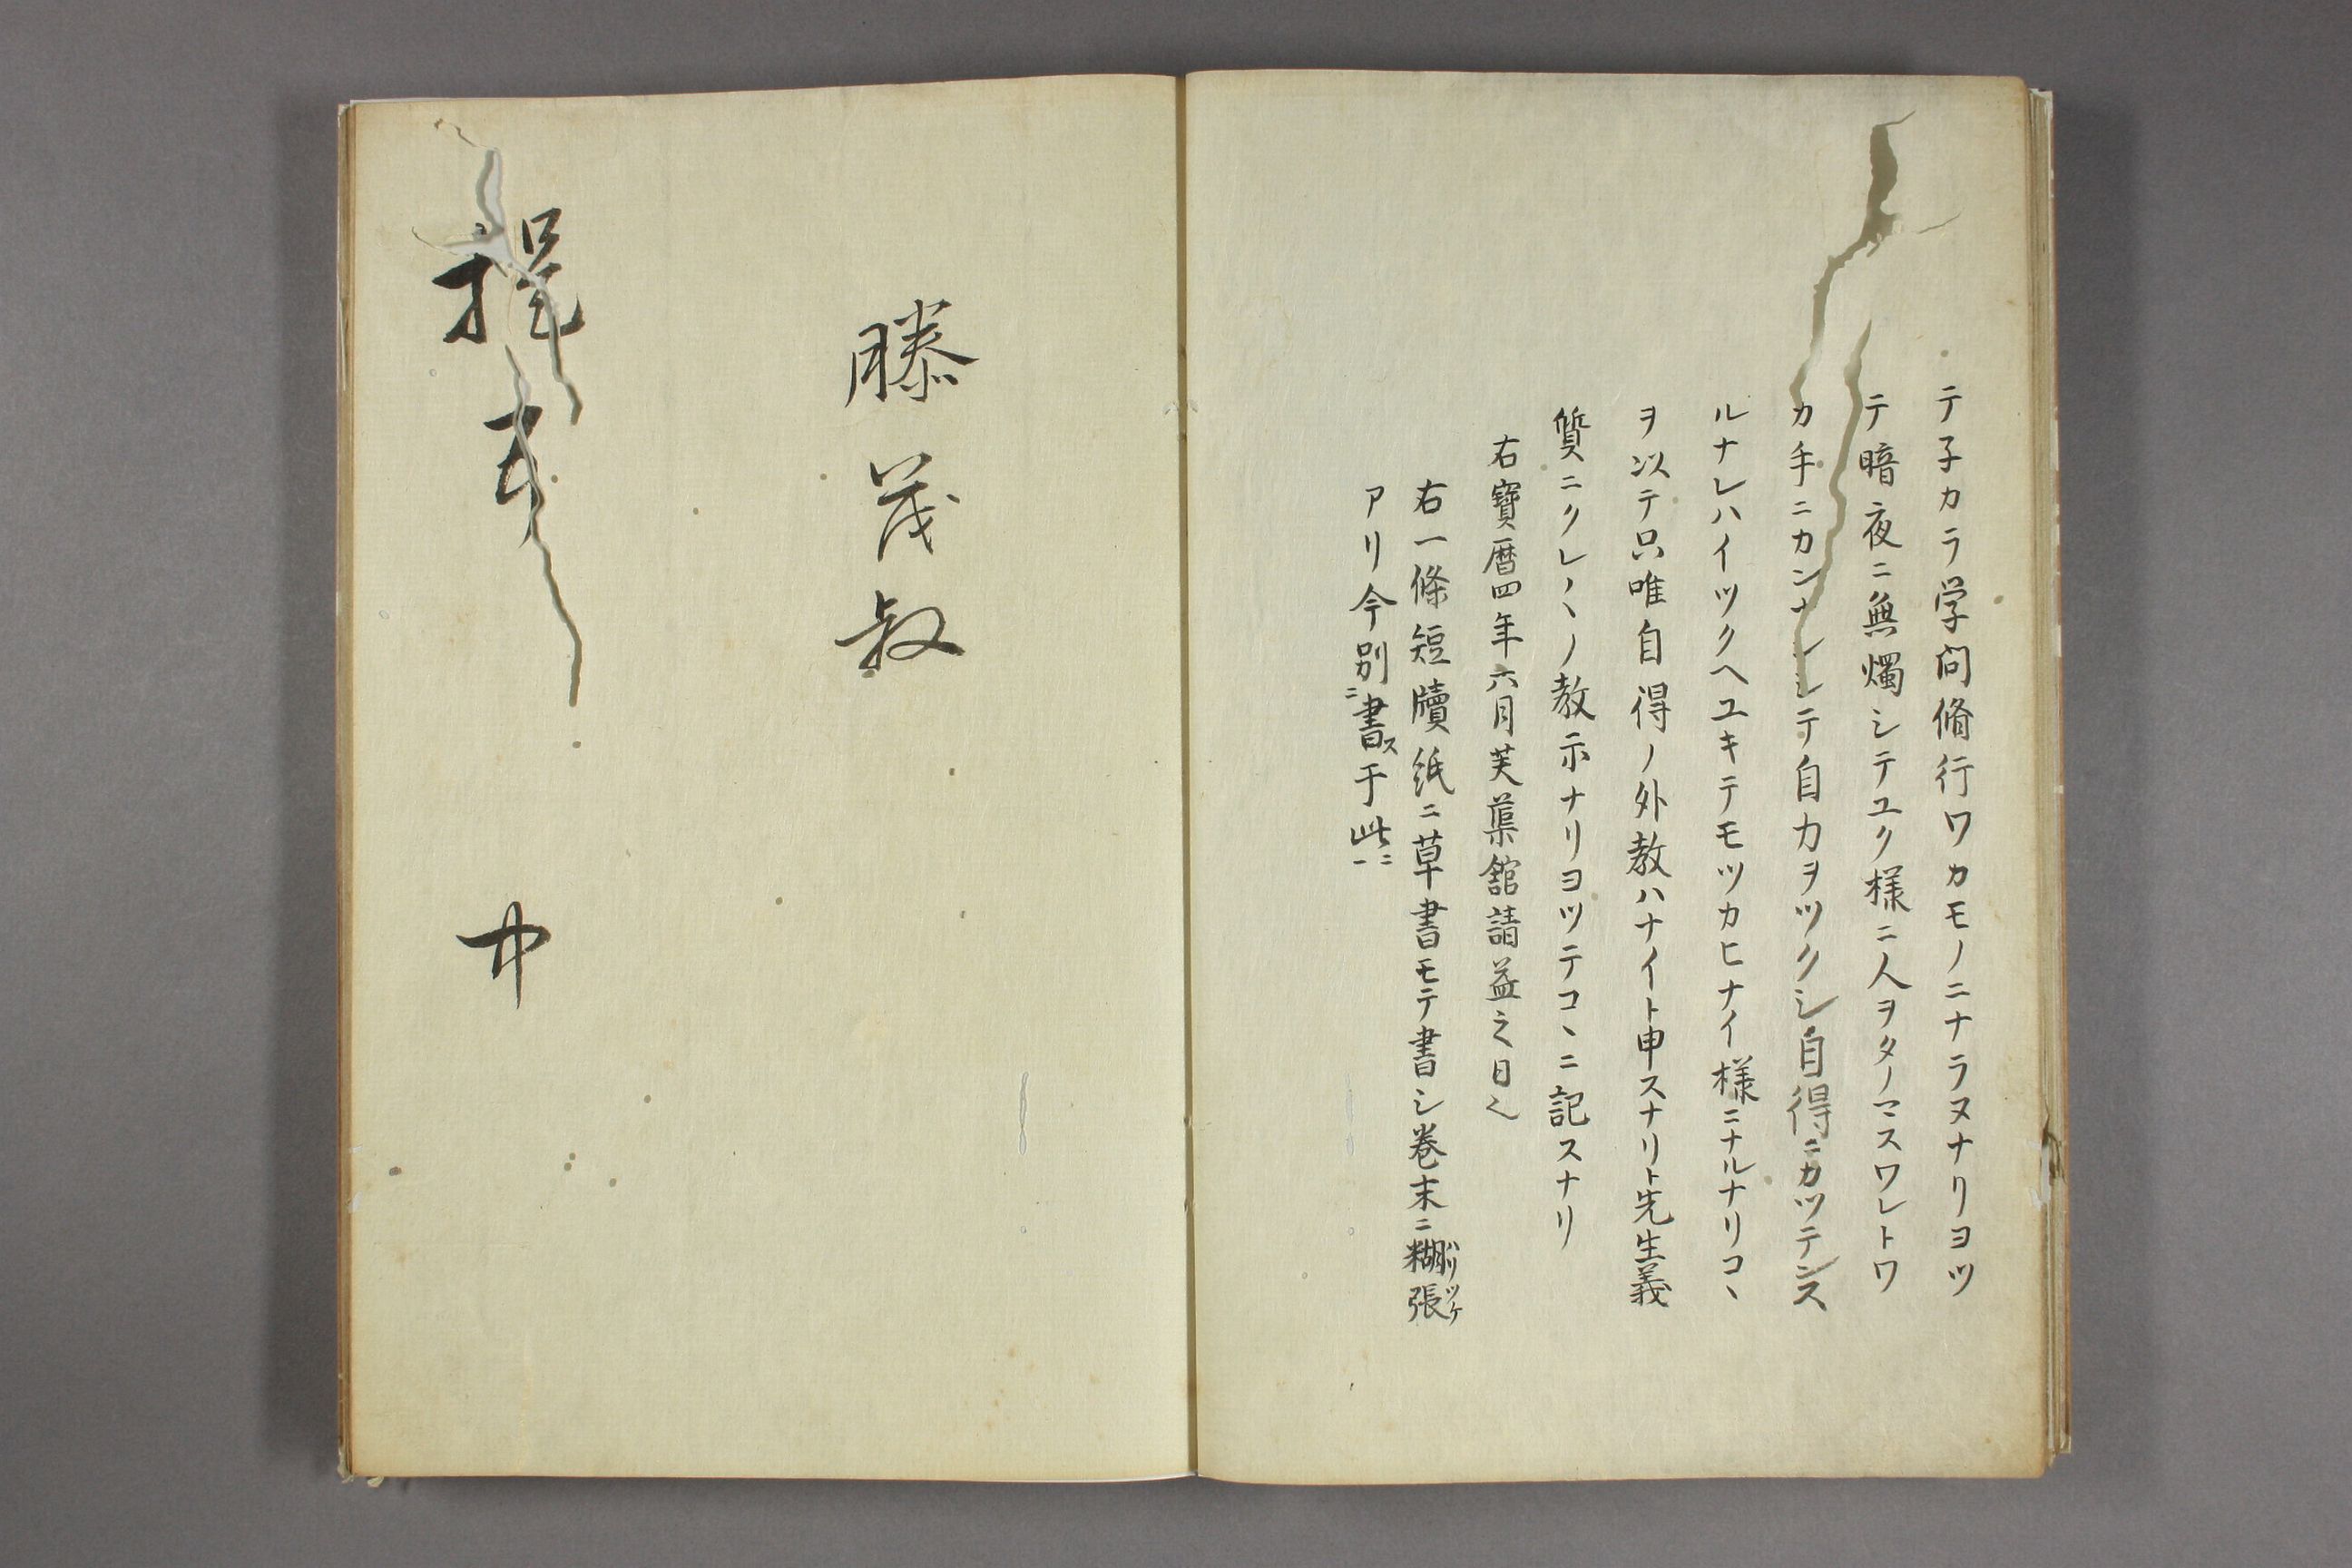 テ子カラ学問脩行ワカモノニナラヌナリヨツ
テ暗夜ニ無燭シテユク様ニ人ヲタノマスワレトワ
カ手ニカンナンシテ自力ヲツクシ自得ニカツテンス
ルナレハイツクヘユキテモツカヒナイ様ニナルナリコヽ
ヲ以テ只唯自得ノ外教ハナイト申スナリト先生義
質ニクレ〳〵ノ教示ナリヨツテコヽニ記スナリ
右寶暦四年六月芙蕖館請益之日
右一條短牘紙ニ草書モテ書シ巻末ニ糊張
ハリツケ
アリ今別ニ書ス于此ニ一
滕茂叔